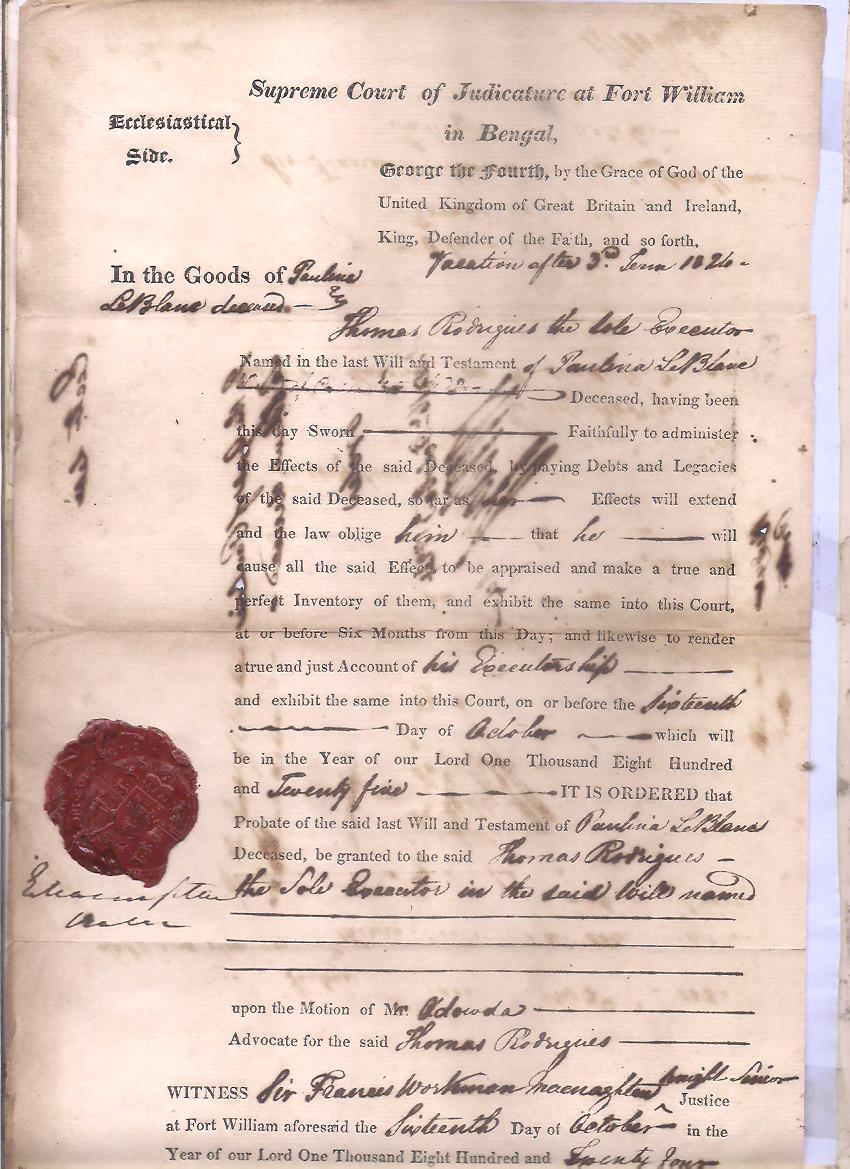 Supreme Court of Judicature at Fort William
in Bengal,
Ecclesiastical
Side.
George the Fourth, by the Grace of God of the
United Kingdom of Great Britain and Ireland,
King, Defender of the Faith, and so forth,
Vacation after 3rd Term 1824
In the Goods of Paulina
LeBlanc deceased
Thomas Rodrigues the Sole Executor
Named in the last Will and Testament of Paulina LeBlanc
Deceased, having been
this day Sworn Faithfully to administer
the Effects of the said Deceased, by paying Debts and Legacies
of the said Deceased, so far as her Effects will extend
and the law oblige him that he will
cause all the said Effects to be appraised and make a true and
perfect Inventory of them, and exhibit the same into this Court,
at or before Six Months from this Day; and likewise to render
a true and just Account of his Executorship
and exhibit the same into this Court, on or before the Sixteenth
Day of October which will
be in the Year of our Lord One Thousand Eight Hundred
and Twenty five IT IS ORDERED that
Probate of the said last Will and Testament of Paulina LeBlanc
Deceased, be granted to the said Thomas Rodrigues
the Sole Executor in the said Will named
upon the Motion of Mr. Odowda
Advocate for the said Thomas Rodrigues
WITNESS Sir Francis Workman Macnaghten Knight Senior
Justice
at Fort William aforesaid the Sixteenth Day of October in the
Year of our Lord One Thousand Eight Hundred and Twenty Four